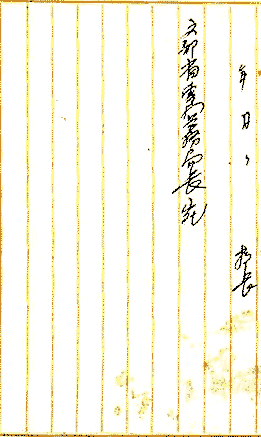 年 月 日 校長
文部省専門学務局長宛